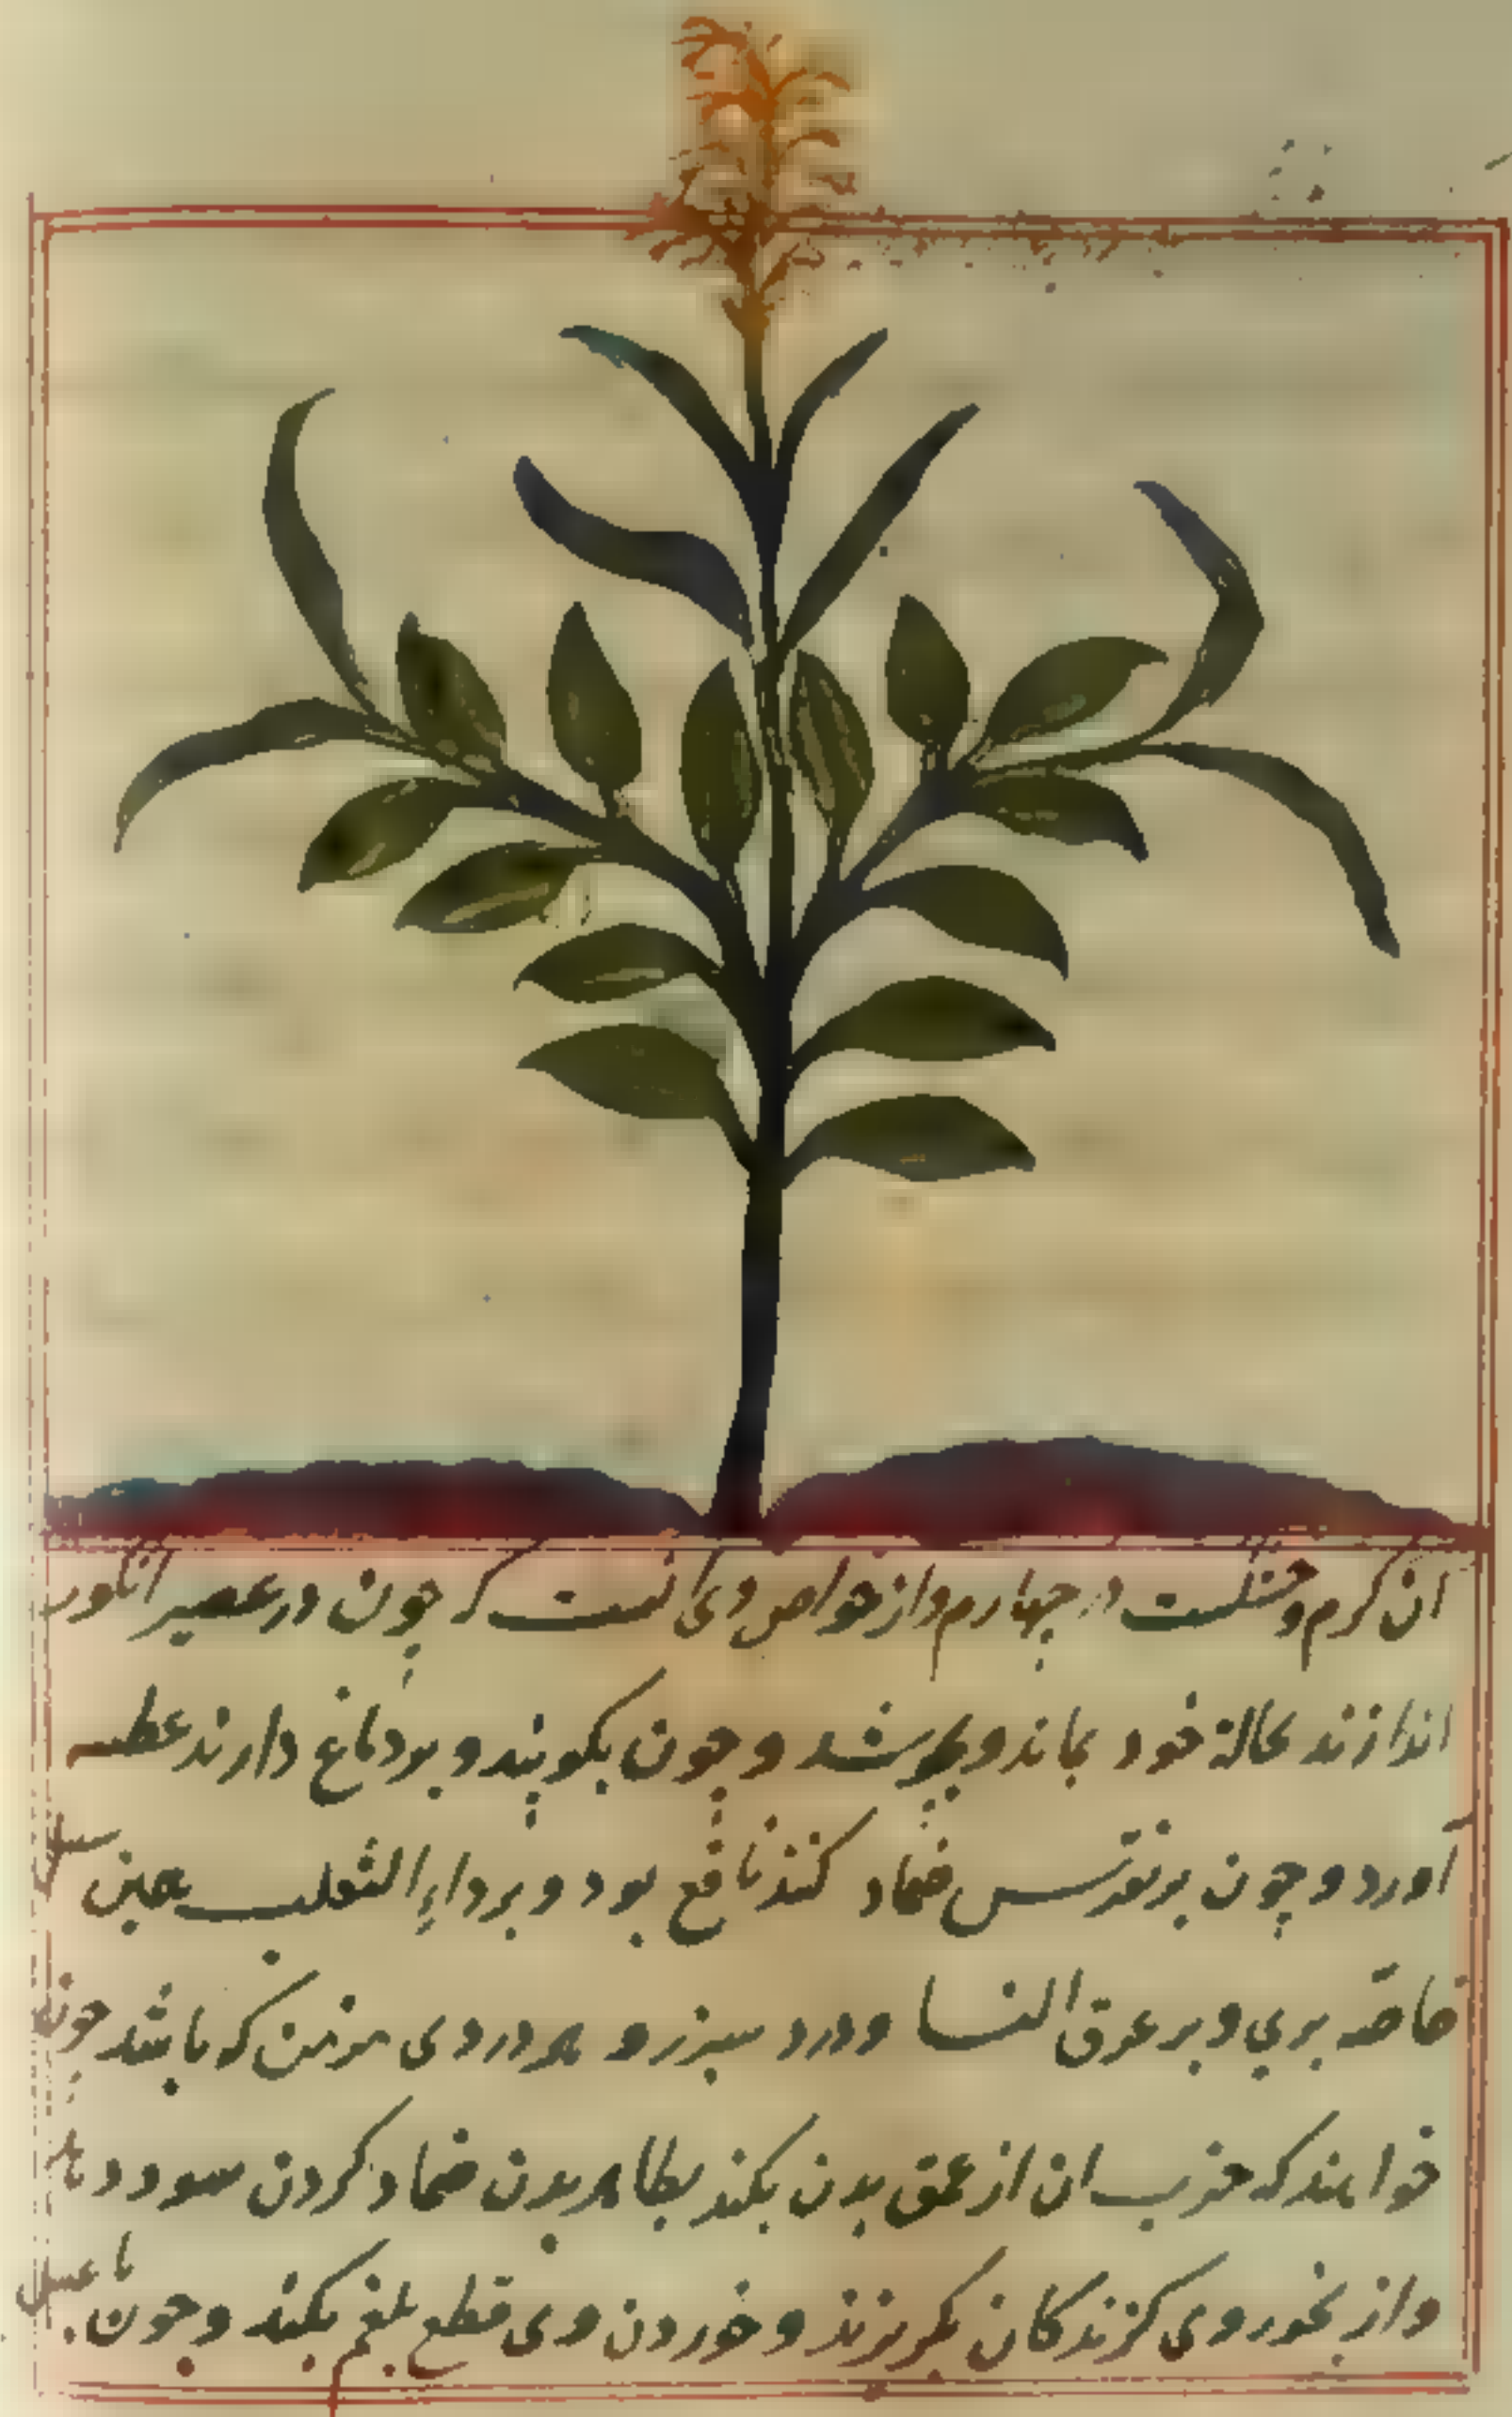 ان کرم و خشکست در چهارم و از خواص وی انست که چون در عصیر انکور
اندازند بحالة خود بماند و بجوشد و چون بکوبند و بر دماغ دارند عطسه
آورد و چون بر نقرس ضماد کنند نافع بود و بر داء الثعلب همین سبیل
خاصه بری و بر عرق النسا و درد سپرز و هر دردی مزمن که باشد چون
خواهند که جذب ان از عمق بدن بکند بظاهر بدن ضماد کردن سود دهد
و از بخور وی کزندکان بکریزند و خوردن وی قطع بلغم بکند و چون با عسل